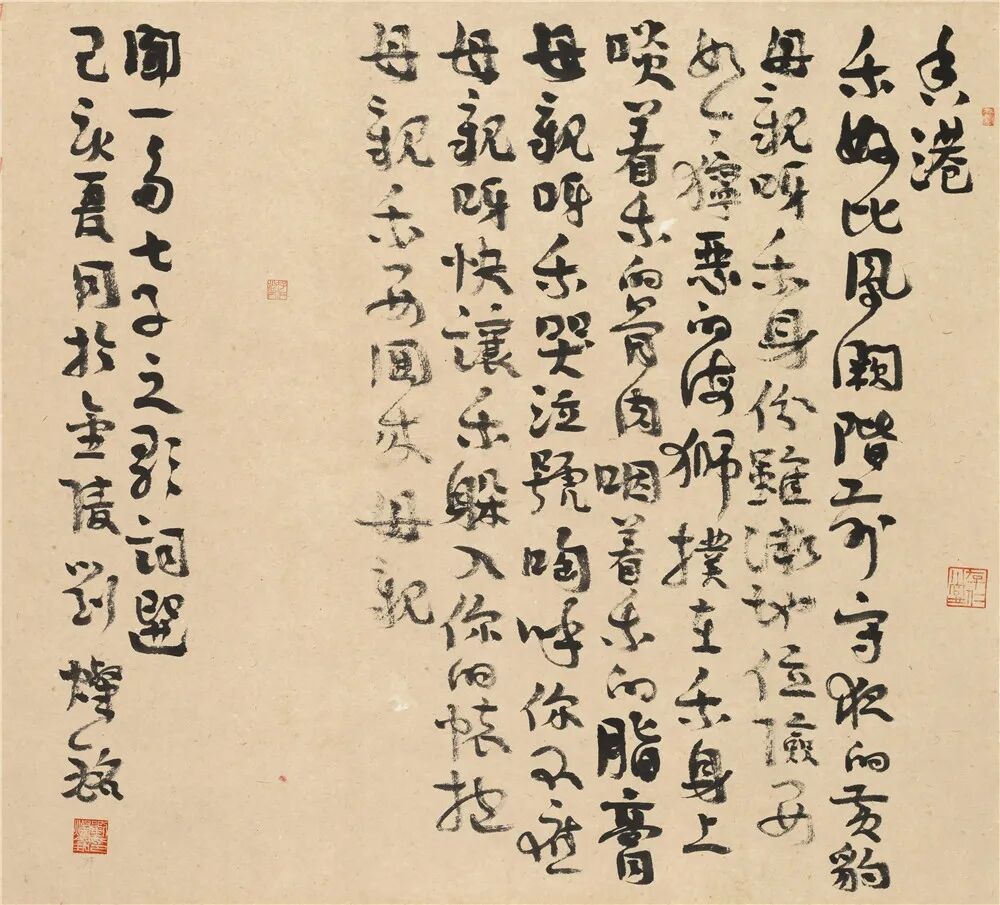 香港
我好比鳳闕階前守夜的黃豹
母親呀我身份雖微地位險要
如今獰惡的海獅撲在我身上
啖着我的骨肉咽着我的脂膏
母親呀我哭泣號啕呼你不應
母親呀快讓我躲入你的懷抱
母親我要回來母親
聞一多七子之歌詞選
己亥夏月於金陵劉燦銘